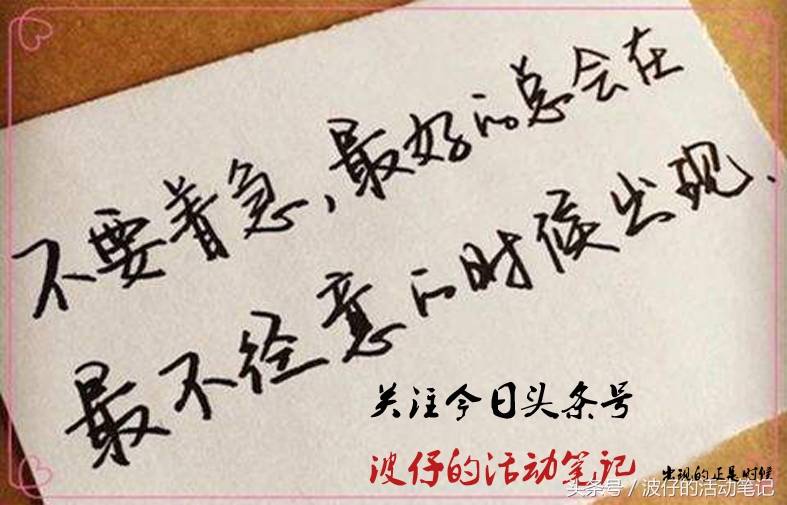 不要着急,最好的总会在
最不经意的时候出现.
关注今日头条号
波仔的活动笔记
出现的正是时候
头条号 / 波仔的活动笔记